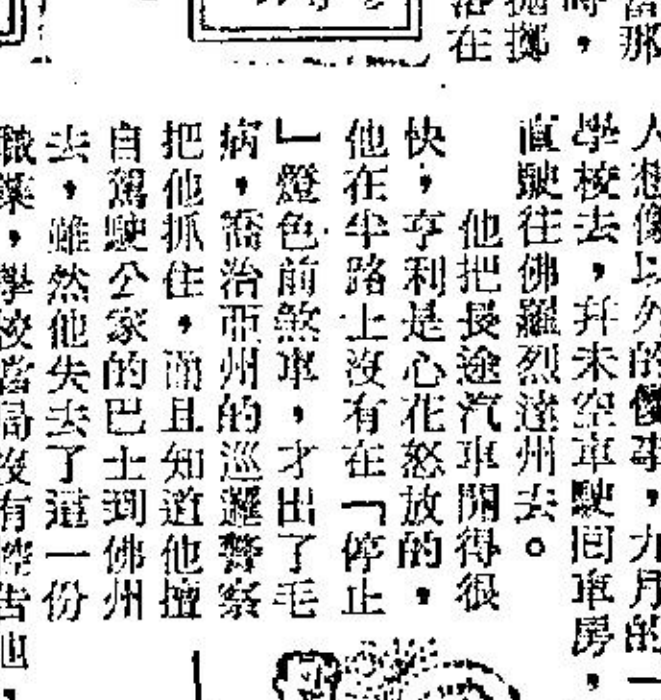 那
時，
拋擲
落在
人想像以外的傻事，九月的一
學校去，幷未空車駛回車房，
直駛往佛羅烈達州去。
他把長途汽車開得很
快，亨利是心花怒放的，
他在半路上沒有在「停止
」燈色前煞車，才出了毛
病，喬治亞州的巡邏警察
把他抓住，而且知道他擅
自駕駛公家的巴士到佛州
去，雖然他失去了這一份
職業，學校當局沒有控告他，